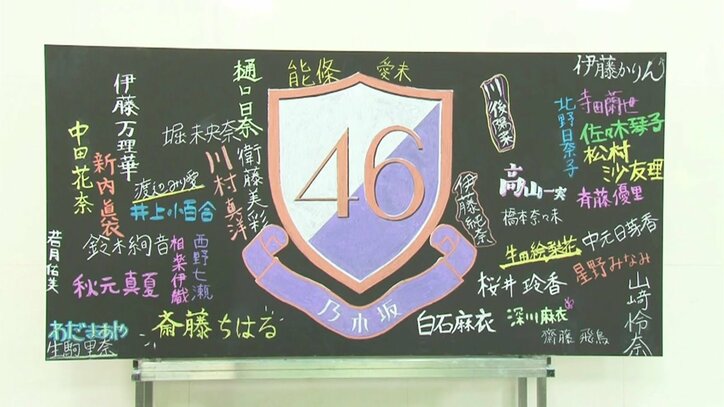 伊藤万理華
中田花奈
新内眞衣
堀未央奈
渡辺みり愛
井上小百合
鈴木絢音
若月佑美
秋元真夏
相楽伊織
西野七瀬
川村真洋
樋口日奈
衛藤美彩
能條愛未
斎藤ちはる
わだまあや
生駒里奈
46
乃木坂
伊藤純奈
川後陽菜
高山一実
橋本奈々未
生田絵梨花
桜井玲香
白石麻衣
深川麻衣
齋藤飛鳥
伊藤かりん
北野日奈子
寺田蘭世
佐々木琴子
松村沙友理
斉藤優里
中元日芽香
星野みなみ
山﨑怜奈